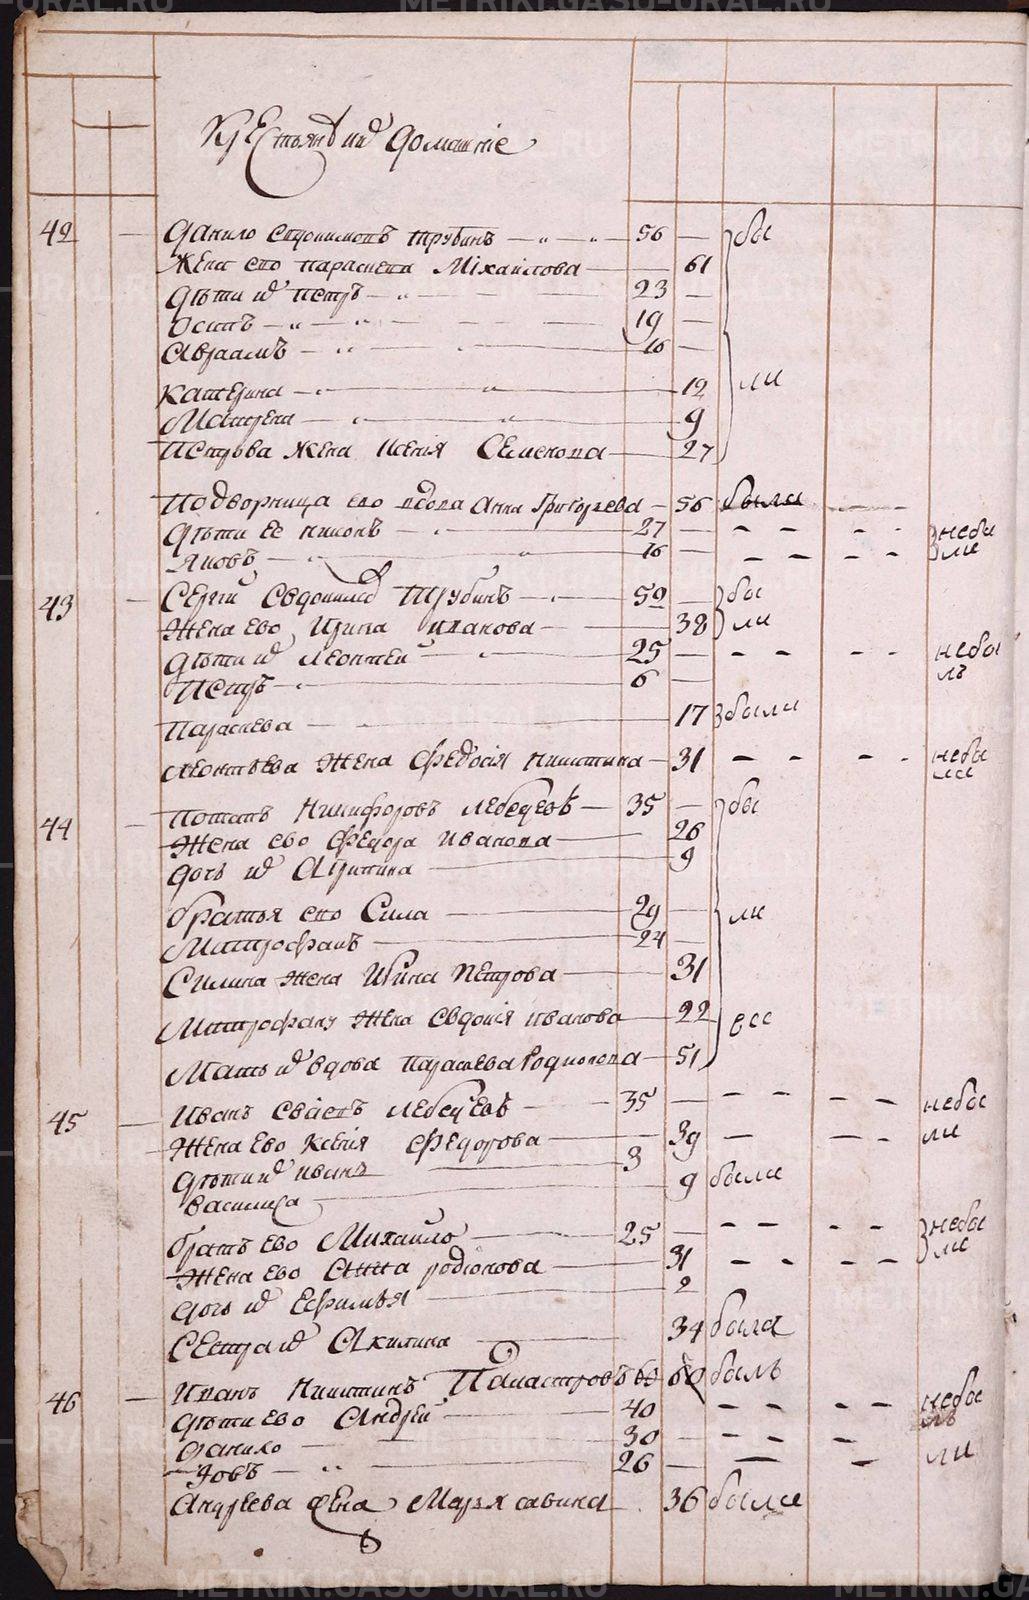 METRIKI.GASO-URAL.RU
Крестьянѣ ихъ домашніе
42 Данило Евдокимовъ Трубинъ 56 бы
Жена ево Парасковья Міхаилова 61
дѣти ихъ Петръ 23
Осипъ 19
Авраамъ 16
Катерина 12 ли
Матрена 9
Петрова жена Ксенія Семенова 27
Подворница ево вдова Анна Григорьева 56 была
дѣти ее Никонъ 27 небы
Яковъ 16 ли
43 Сергѣй Евдокимовъ Трубинъ 59 бы
Жена ево Ирина Иванова 38 ли
дѣти ихъ Леонтей 25 небы
Петръ 6 лъ
Параскева 17 были
Леонтьева жена Федосія Никитина 31 небы
ла
44 Потапъ Никифоровъ Лебедевъ 35 бы
Жена ево Федора Иванова 26
дочь ихъ Агрипина 9
братья ево Сила 29 ли
Митрофанъ 24
Силина жена Ирина Петрова 31
Митрофану жена Евдокія Иванова 22 все
Мать ихъ вдова Парасковья Родионова 51
45 Иванъ Савинъ Лебедевъ 35 небы
Жена ево Ксенія Федорова 39 ли
дѣти ихъ Иванъ 3
Василиса 9 были
братъ ево Михаило 25 небы
Жена ево Анна Родионова 31 ли
дочь ихъ Ефимья 2
Сестра ихъ Акилина 34 была
46 Иванъ Никитинъ 60 былъ
дѣти ево Андрей 40 небы
Данило 30
Іовъ 26 ли
Андреева жена Марья Савина 36 была
METRIKI.GASO-URAL.RU